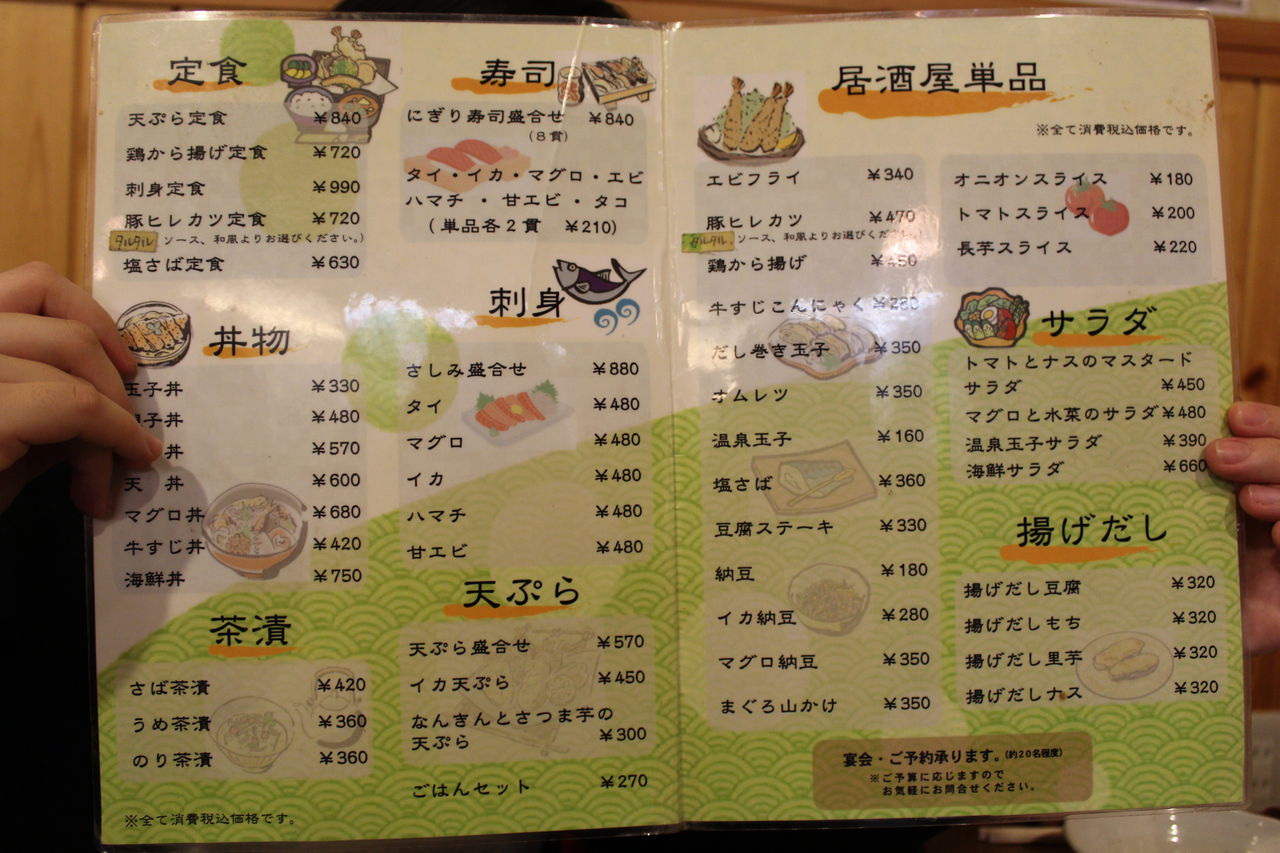 定食
天ぷら定食 ¥840
鶏から揚げ定食 ¥720
刺身定食 ¥990
豚ヒレカツ定食 ¥720
タルタル ソース、和風よりお選びください。)
塩さば定食 ¥630
丼物
玉子丼 ¥330
子丼 ¥480
丼 ¥570
天 丼 ¥600
マグロ丼 ¥680
牛すじ丼 ¥420
海鮮丼 ¥750
茶漬
さば茶漬 ¥420
うめ茶漬 ¥360
のり茶漬 ¥360
※全て消費税込価格です。
寿司
にぎり寿司盛合せ ¥840
(8貫)
タイ・イカ・マグロ・エビ
ハマチ ・ 甘エビ ・ タコ
(単品各2貫 ¥210)
刺身
さしみ盛合せ ¥880
タイ ¥480
マグロ ¥480
イカ ¥480
ハマチ ¥480
甘エビ ¥480
天ぷら
天ぷら盛合せ ¥570
イカ天ぷら ¥450
なんきんとさつま芋の
天ぷら ¥300
ごはんセット ¥270
居酒屋単品
※全て消費税込価格です。
エビフライ ¥340
豚ヒレカツ ¥470
タルタル ソース、和風よりお選びください。)
鶏から揚げ ¥450
牛すじこんにゃく ¥280
だし巻き玉子 ¥350
オムレツ ¥350
温泉玉子 ¥160
塩さば ¥360
豆腐ステーキ ¥330
納豆 ¥180
イカ納豆 ¥280
マグロ納豆 ¥350
まぐろ山かけ ¥350
オニオンスライス ¥180
トマトスライス ¥200
長芋スライス ¥220
サラダ
トマトとナスのマスタード
サラダ ¥450
マグロと水菜のサラダ ¥480
温泉玉子サラダ ¥390
海鮮サラダ ¥660
揚げだし
揚げだし豆腐 ¥320
揚げだしもち ¥320
揚げだし里芋 ¥320
揚げだしナス ¥320
宴会・ご予約承ります。(約20名程度)
※ご予算に応じますので
お気軽にお問合せください。